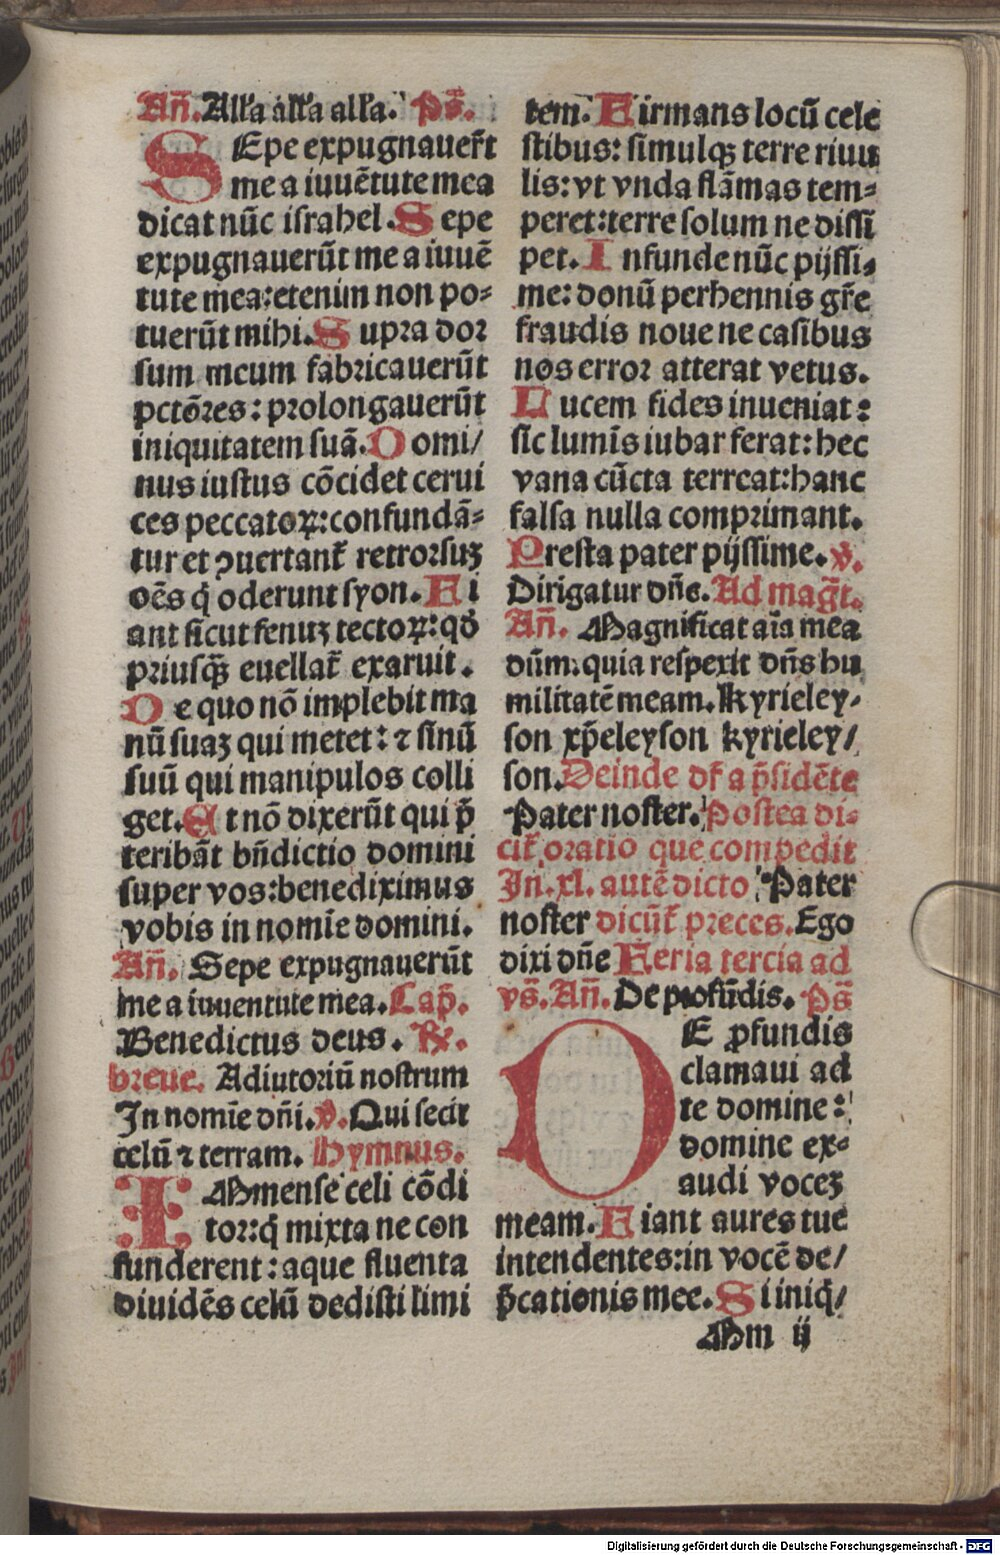 Añ. Alľa alľa alľa. Ps̄.
SEpe expugnauer̃t
me a iuuẽtute mea
dicat nũc israhel. Sepe
expugnauerũt me a iuuẽ
tute mea: etenim non po-
tuerũt mihi. Supra dor
sum meum fabricauerũt
pctõres: prolongauerũt
iniquitatem suã. Domi/
nus iustus cõcidet cerui
ces peccatoꝝ: confundã-
tur et ꝯuertant᷑ retrorsuꝫ
oẽs q̇ oderunt syon. Fi
ant sicut fenuꝫ tectoꝝ: qd̓
priusq̃ꝫ euellat᷑ exaruit.
De quo nõ implebit ma
nũ suaꝫ qui metet: ⁊ sinũ
suũ qui manipulos colli
get. Et nõ dixerũt qui p̄
teribãt bñdictio domini
super vos: benediximus
vobis in nomĩe domini.
Añ. Sepe expugnauerũt
me a iuuentute mea. Cap̄.
Benedictus deus. ℟.
breue. Adiutoriũ nostrum
In nomĩe dñi. ℣. Qui fecit
celũ ⁊ terram. Hymnus.
IMmense celi cõdi
tor: q̇ mixta ne con
funderent: aque fluenta
diuidẽs celũ dedisti limi
tem. Firmans locũ cele
stibus: simulqꝫ terre riuu
lis: vt vnda flãmas tem-
peret: terre solum ne dissi
pet. Infunde nũc pijssi-
me: donũ perhennis gr̃e
fraudis noue ne casibus
nos error atterat vetus.
Lucem fides inueniat:
sic lumĩs iubar ferat: hec
vana cũcta terreat: hanc
falsa nulla comprimant.
Presta pater pijssime. ℣.
Dirigatur dñe. Ad mag̃t.
Añ. Magnificat aĩa mea
dũm: quia respexit dñs hu
militatẽ meam. Kyrieley-
son xp̄eleyson kyrieley/
son. Deinde dr᷑ a p̄sidẽte
Pater noster. Postea di-
cit᷑ oratio que compedit
In. xl. autẽ dicto Pater
noster dicũt᷑ preces. Ego
dixi dñe Feria tercia ad
vs̄. Añ. De profũdis. Ps̄
DE ꝓfundis
clamaui ad
te domine:
domine ex-
audi voceꝫ
meam. Fiant aures tue
intendentes: in vocẽ de/
p̄cationis mee. Si iniq̇/
Mm ij
Digitalisierung gefördert durch die Deutsche Forschungsgemeinschaft - DFG